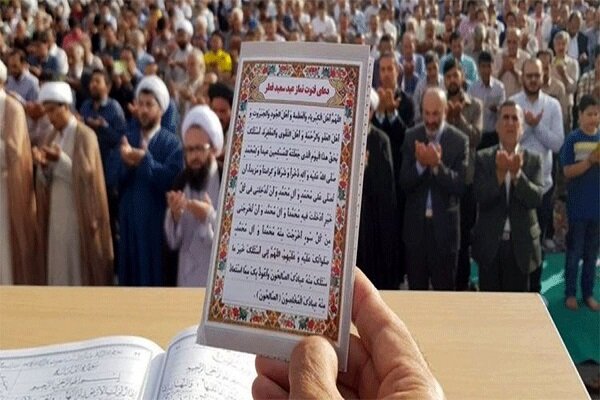 دعای قنوت نماز عید سعید فطر
اَللّهُمَّ اَهْلَ الْكِبْرِیاءِ وَالْعَظَمَةِ وَ اَهْلَ الْجُودِ وَالْجَبَرُوتِ وَ
اَهْلَ الْعَفْوِ وَالرَّحْمَةِ وَ اَهْلَ التَّقْوی وَالْمَغْفِرَةِ اَسْئَلُكَ
بِحَقِّ هذَا الْیَومِ الَّذی جَعَلْتَهُ لِلْمُسْلِمینَ عیداً وَ لِمُحَمَّدٍ
صَلَّی اللهُ عَلَیْهِ وَ آلِهِ ذُخْراً وَ شَرَفاً وَ كَرامَةً وَ مَزیداً اَنْ
تُصَلِّیَ عَلی مُحَمَّدٍ وَ آلِ مُحَمَّدٍ وَ اَنْ تُدْخِلَنی فی كُلِّ
خَیْرٍ اَدْخَلْتَ فیهِ مُحَمَّداً وَ آلَ مُحَمَّدٍ وَ اَنْ تُخْرِجَنی
مِنْ كُلِّ سُوءٍ اَخْرَجْتَ مِنْهُ مُحَمَّداً وَ آلَ مُحَمَّدٍ
صَلَواتُكَ عَلَیْهِ وَ عَلَیْهِمْ اَللّهُمَّ اِنّی اَسْئَلُكَ خَیْرَ ما
سَئَلَكَ مِنْهُ عِبادُكَ الصّالِحُونَ وَاَعُوذُ بِكَ مِمَّا اسْتَعاذَ
مِنْهُ عِبادُكَ الْمُخْلَصُونَ (الصّالِحُونَ).